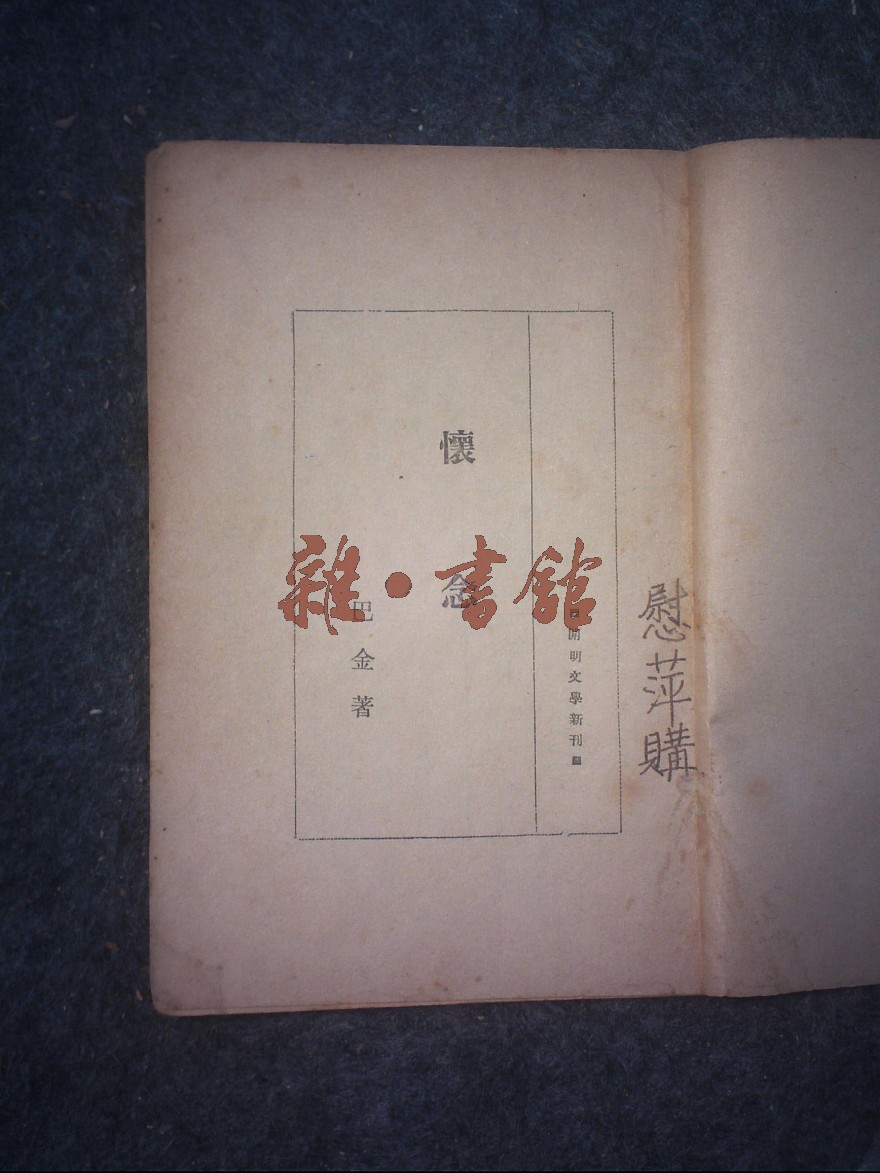 開明文學新刊
懷念
巴金著
慰萍購
雜·書館